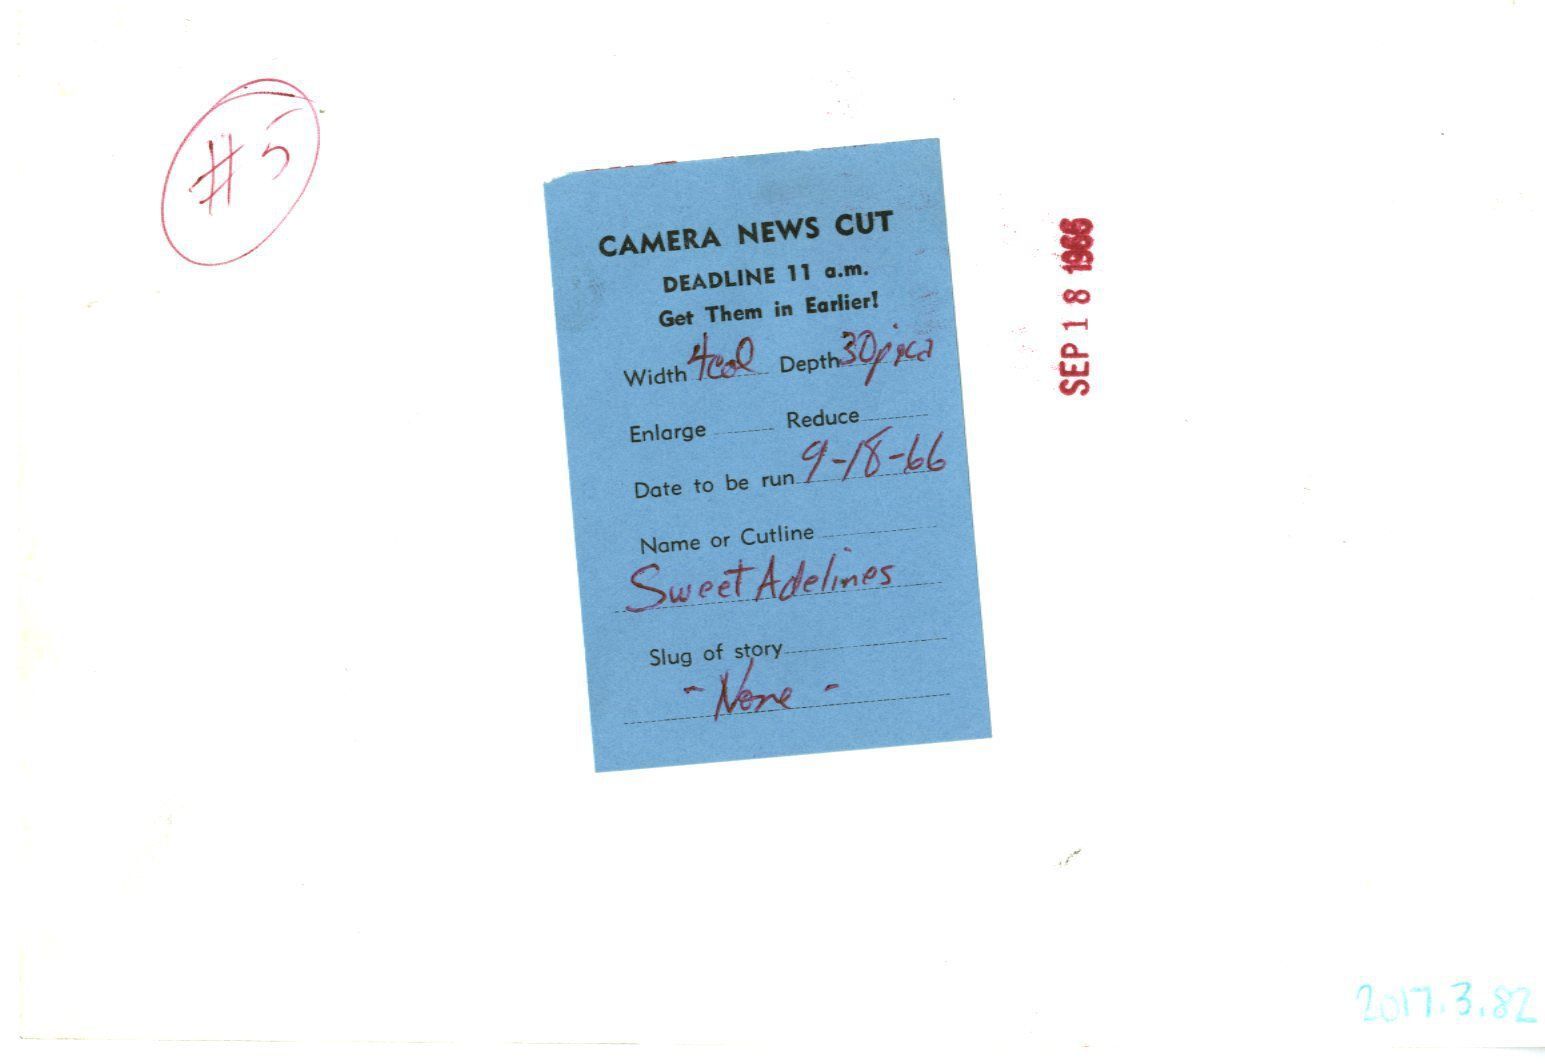 #5
CAMERA NEWS CUT
DEADLINE 11 a.m.
Get Them in Earlier!
Width 4col Depth 30 pica
Enlarge Reduce
Date to be run 9-18-66
Name or Cutline
Sweet Adelines
Slug of story
- None -
SEP 18 1966
2017.3.82